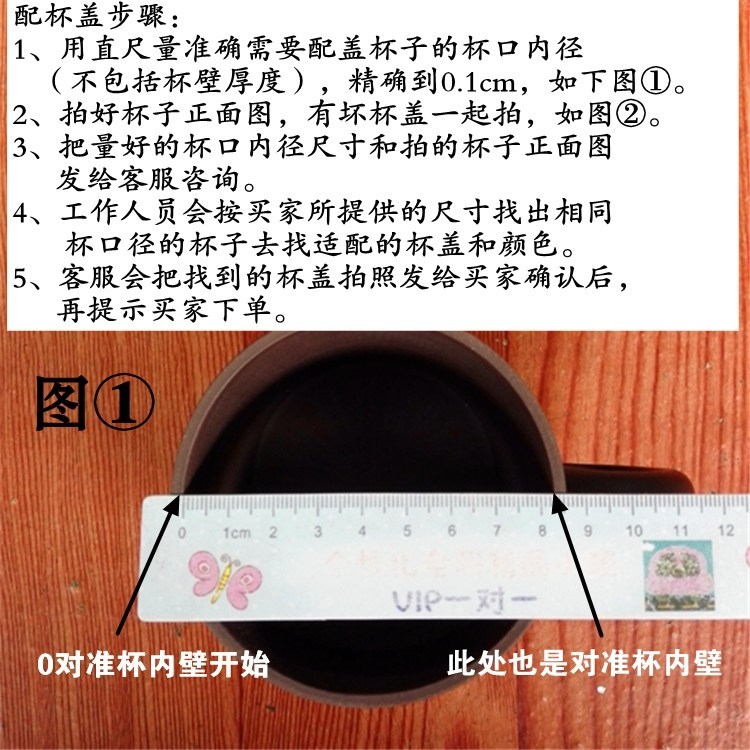 配杯盖步骤:
1、用直尺量准确需要配盖杯子的杯口内径
(不包括杯壁厚度),精确到0.1cm,如下图①。
2、拍好杯子正面图,有坏杯盖一起拍,如图②。
3、把量好的杯口内径尺寸和拍的杯子正面图
发给客服咨询。
4、工作人员会按买家所提供的尺寸找出相同
杯口径的杯子去找适配的杯盖和颜色。
5、客服会把找到的杯盖拍照发给买家确认后,
再提示买家下单。
图①
0 1cm 2 3 4 5 6 7 8 9 10 11 12
VIP一对一
0对准杯内壁开始
此处也是对准杯内壁